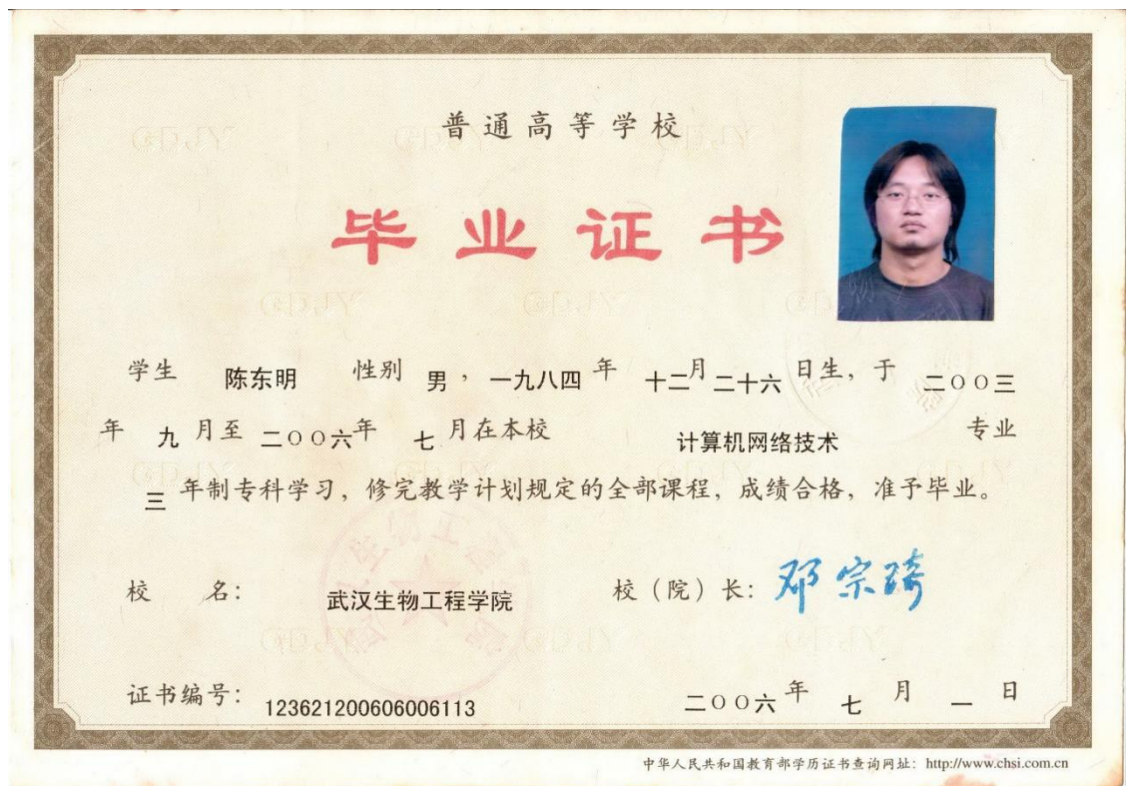 普通高等学校
毕业证书
学生 陈东明 性别 男，一九八四 年 十二月二十六 日生，于 二００三
年 九 月至 二００六年 七 月在本校 计算机网络技术 专业
三 年制专科学习，修完教学计划规定的全部课程，成绩合格，准予毕业。
校 名： 武汉生物工程学院 校（院）长：邓宗琦
证书编号：123621200606006113 二００六 年 七 月 一 日
中华人民共和国教育部学历证书查询网址：http://www.chsi.com.cn